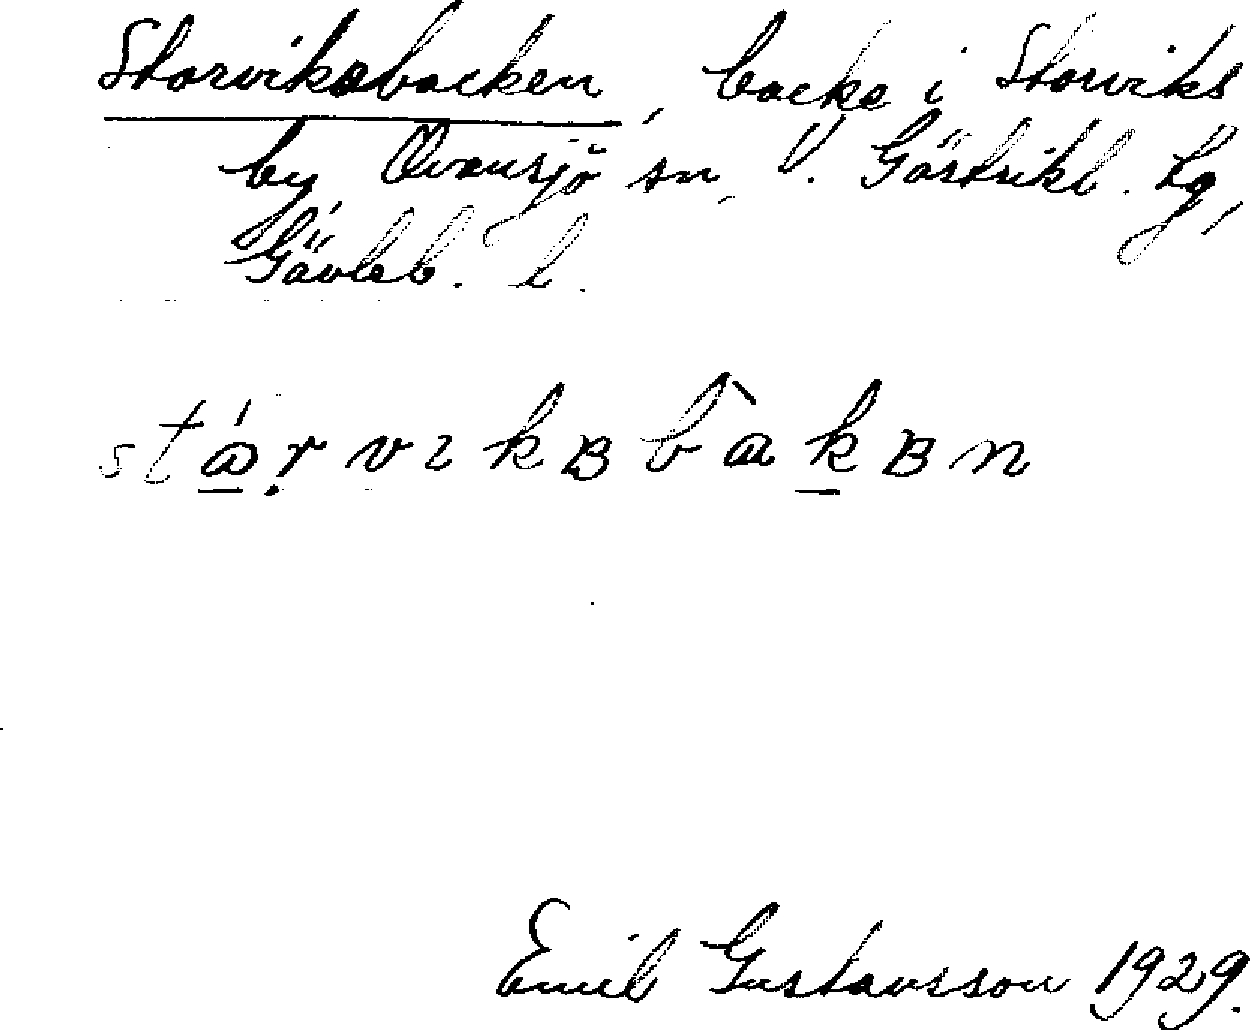 Storviksbacken, backe i Storviks
by Ovansjö sn, V. Gästrikl. tg,
Gävleb. l.
stárvıkʙbàkʙn
Emil Gustavsson 1929.